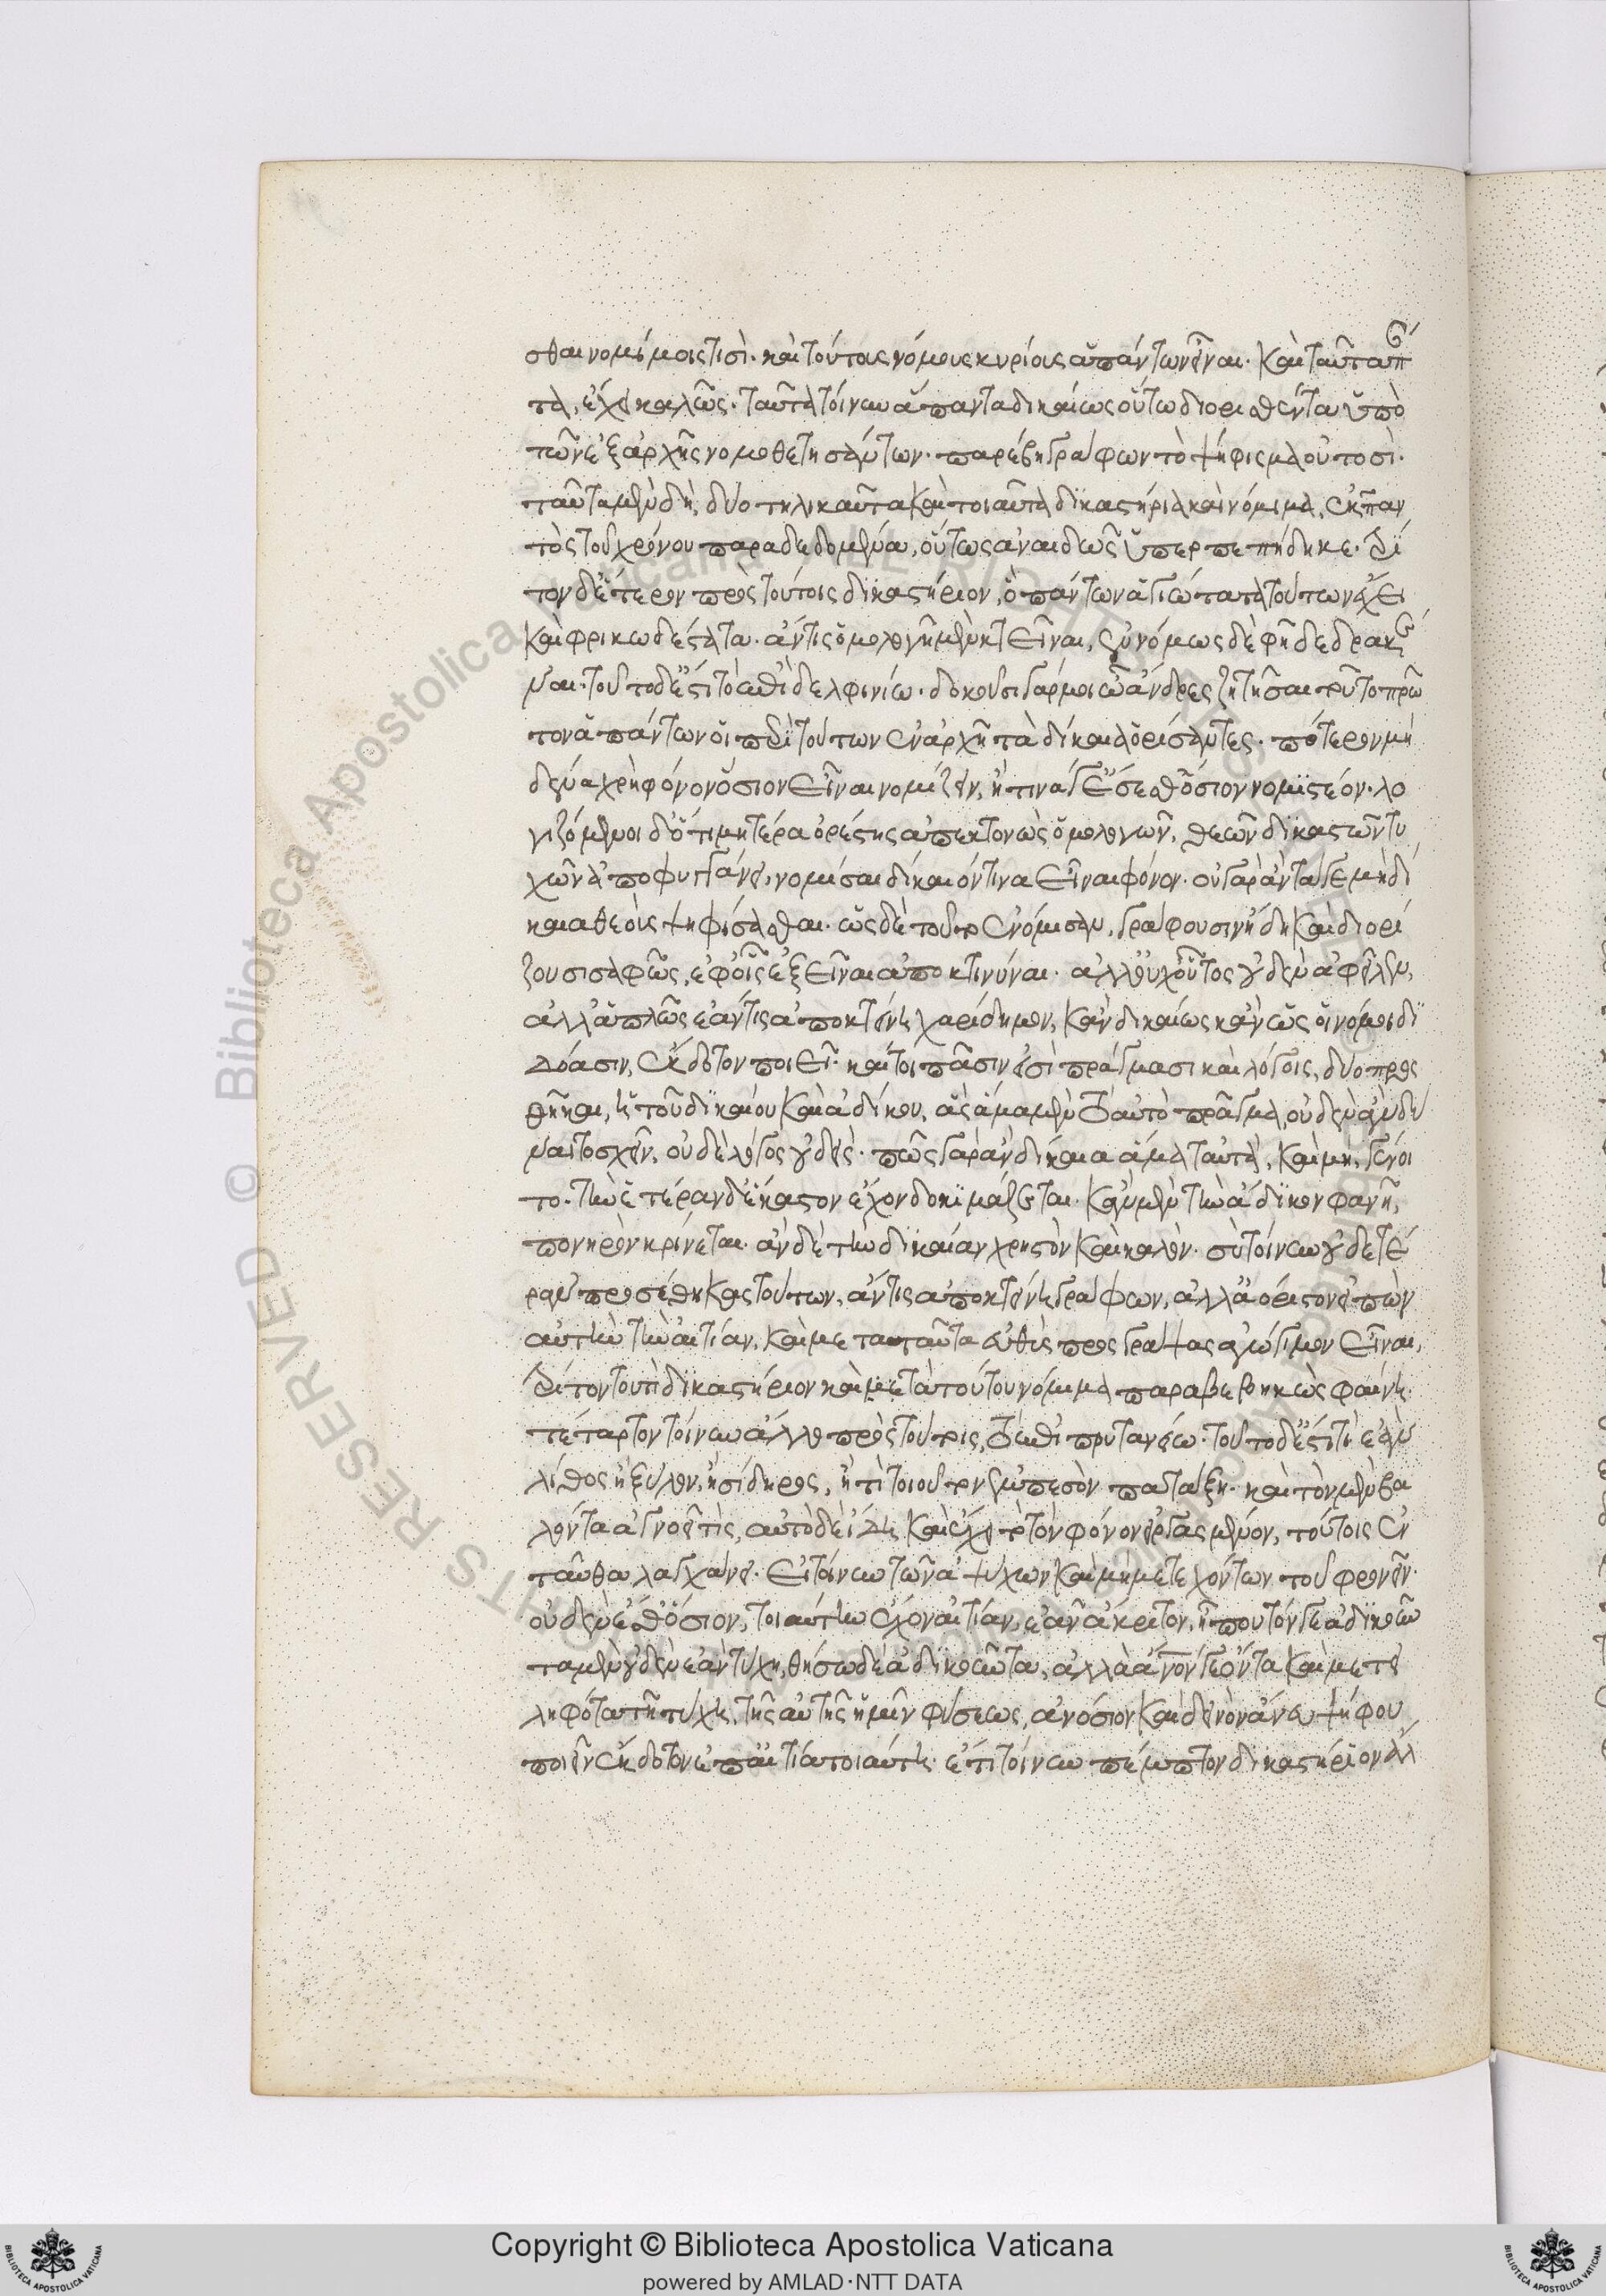 σθαι νομίμοις τισὶ. καὶ τούτους νόμους κυρίους ἁπάντων εἶναι. καὶ ταῦτα πάν
τα, ἔχει καλῶς. ταῦτα τοίνυν ἅπαντα δικαίως οὕτω διορισθέντα ὑπὸ
τῶν ἐξ ἀρχῆς νομοθετησάντων. παρέβη γράφων τὸ ψήφισμα οὑτοσὶ.
ταῦτα μὲν δὴ, δύο τηλικαῦτα καὶ τοιαῦτα δικαστήρια καὶ νόμιμα, ἐκ παν
τὸς τοῦ χρόνου παραδεδομένα, οὕτως ἀναιδῶς ὑπερπεπήδηκε. τρί
τον δ' ἕτερον πρὸς τούτοις δικαστήριον, ὃ πάντων ἁγιώτατα τούτων ἔχει
καὶ φρικωδέστατα. ἄν τις ὁμολογῇ μὲν κτεῖναι, ἐννόμως δὲ φῇ δεδρακέ
ναι. τοῦτο δ' ἐστὶ τὸ ἐπὶ δελφινίω. δοκοῦσι γάρ μοι ὦ ἄνδρες ζητῆσαι τοῦτο πρῶ
τον ἁπάντων οἱ περὶ τούτων ἐν ἀρχῆ τὰ δίκαια ὁρίσαντες. πότερον μη
δένα χρὴ φόνον ὅσιον εἶναι νομίζειν, ἢ τινά γε ἔσεσθ' ὅσιον νομιστέον. λο
γιζόμενοι δ' ὅτι μητέρα ὀρέστης ἀπεκτονὼς ὁμολογῶν, θεῶν δικαστῶν τυ
χὼν ἀποφυγγάνει, νομίσαι δίκαιόν τινα εἶναι φόνον. οὐ γὰρ ἂν τά γε μὴ δί
καια θεοὺς ψηφίσασθαι. ὡς δὲ τοῦτο ἐνόμισαν, γράφουσιν ἤδη καὶ διορί
ζουσι σαφῶς, ἐφ' οἷς ἐξεῖναι ἀποκτιννύναι. ἀλλ' οὐχ οὗτος οὐδὲν ἀφεῖλεν,
ἀλλ' ἁπλῶς ἐάν τις ἀποκτείνη χαρίδημον, κἂν δικαίως κἂν ὡς οἱ νόμοι δι
δόασιν, ἔκδοτον ποιεῖ. καίτοι πᾶσίν εἰσι πράγμασι καὶ λόγοις, δύο προς
θῆκαι, ἡ τοῦ δικαίου καὶ ἀδίκου, ἃς ἅμα μὲν τὸ αὐτὸ πρᾶγμα, οὐδὲν ἂν δύ
ναιτο σχεῖν, οὐδὲ λόγος οὐδείς. πῶς γὰρ ἂν δίκαια ἅμα ταυτὰ, καὶ μὴ, γένοι
το. τὴν ἑτέραν δ' ἕκαστον ἔχον δοκιμάζεται. κἂν μὲν τὴν ἄδικον φανῆ,
πονηρὸν κρίνεται. ἂν δὲ τὴν δικαίαν χρηστὸν καὶ καλόν. σὺ τοίνυν οὐδετέ
ραν προσέθηκας τούτων, ἄν τις ἀποκτείνη γράφων, ἀλλ' ἀόριστον εἰπὼν
αὐτὴν τὴν αἰτίαν, καὶ μετὰ ταῦτα εὐθὺς προσγράψας ἀγώγιμον εἶναι,
τρίτον τουτὶ δικαστήριον καὶ μετὰ τούτου νόμιμα παραβεβηκὼς φαίνη.
τέταρτον τοίνυν ἄλλο πρὸς τούτοις, τὸ ἐπὶ πρυτανείω. τοῦτο δ' ἐστὶ τί. ἐὰν
λίθος ἢ ξύλον, ἢ σίδηρος, ἤ τι τοιοῦτον ἐμπεσὸν πατάξη. καὶ τὸν μὲν βα
λόντα ἀγνοεῖ τις, αὐτὸ δὲ εἰδῆ καὶ ἔχει τὸ τὸν φόνον εἰργασμένον, τούτοις ἐν
ταῦθα λαγχάνει. εἰ τοίνυν τῶν ἀψύχων καὶ μὴ μετεχόντων τοῦ φρονεῖν.
οὐδὲν ἔσθ' ὅσιον, τοιαύτην ἔχον αἰτίαν, ἐᾶν ἄκριτον, ἦ που τόν γε ἀδικοῦν
τα μὲν οὐδὲν ἐὰν τύχη, θήσω δὲ ἀδικοῦντα, ἀλλὰ ἄν̅ο̅ν̅ γε ὄντα καὶ μετει
ληφότα τῆ τύχη, τῆς αὐτῆς ἡμῖν φύσεως, ἀνόσιον καὶ δεινὸν ἄνευ ψήφου
ποιεῖν ἔκδοτον ἐπ' αἰτία τοιαύτη. ἔτι τοίνυν πέμπτον δικαστήριον ἄλλ